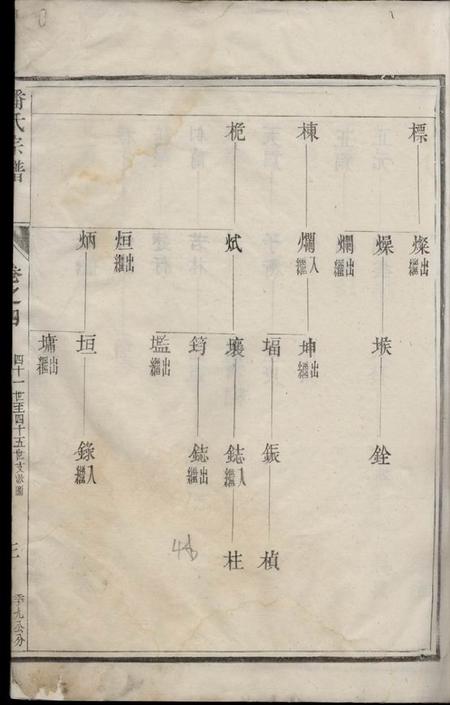 標
棟
桅
燦 出繼
燥
爛 出繼
爛 入繼
烒
烜 出繼
炳
堠
坤 出繼
堛
壤
筠
塩 出繼
垣
墉 出繼
銓
鋠
鋕 入繼
鋕 出繼
錄 入繼
楨
柱
48
潘氏宗譜
卷之四
四十一世至四十五世支派圖
三
季九公分